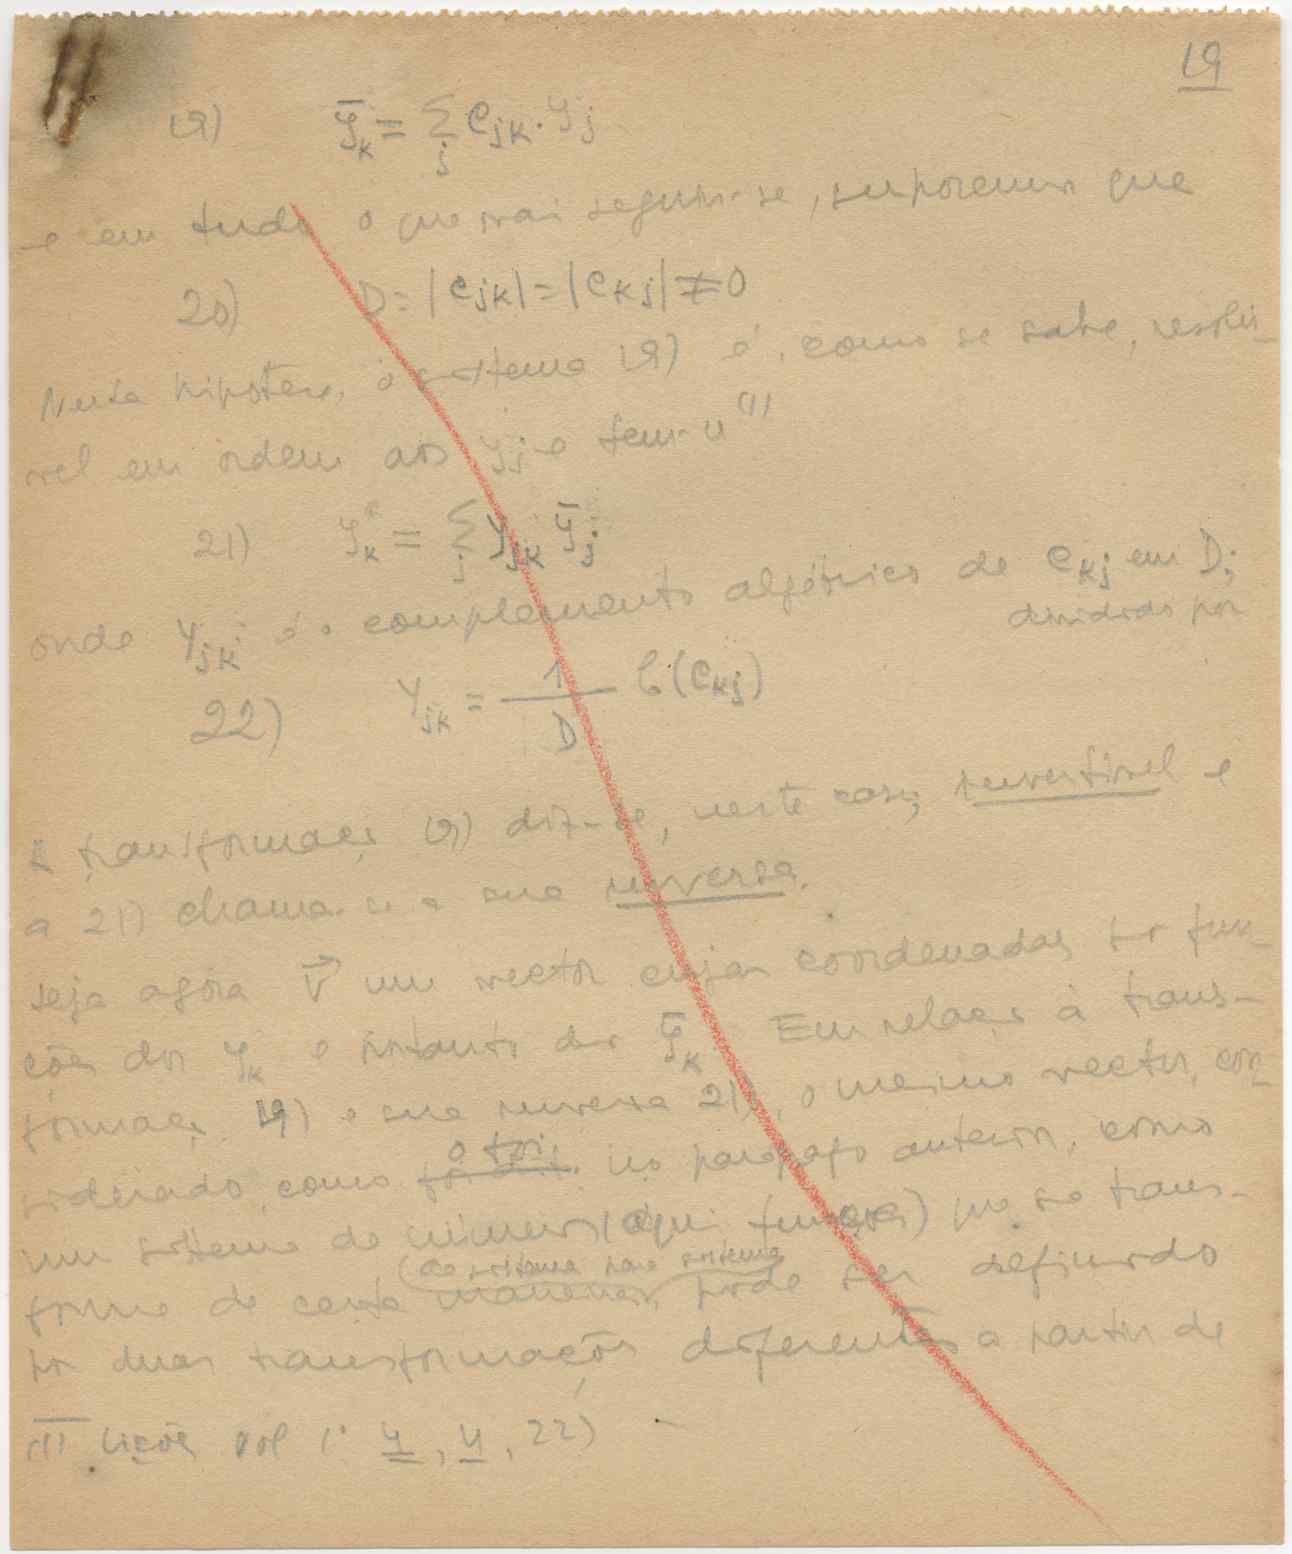 19
19) ȳₖ = Σⱼ cⱼₖ · yⱼ
e em tudo o que vai seguir-se, suporemos que
20) D = |cⱼₖ| = |cₖⱼ| ≠ 0
Nesta hipótese, o sistema 19) é, como se sabe, resolú-
vel em ordem aos yⱼ e tem-se (1)
21) yₖ = Σⱼ γⱼₖ ȳⱼ
onde γⱼₖ é o complemento algébrico de cₖⱼ em D;
dividido por
22) γⱼₖ = 1/D C(cₖⱼ)
A transformação 19) diz-se, neste caso, reversível e
a 21) chama-se a sua inversa.
Seja agora V⃗ um vector cujas coordenadas são fun-
ções dos yₖ e portanto dos ȳₖ. Em relação à trans-
formação 19) e sua inversa 21), o mesmo vector, con-
siderado, como o foi no parágrafo anterior, como
um sistema de números (aqui funções) que se trans-
(de sistema para sistema
forma de certa maneira, pode ser definido
por duas transformações diferentes a partir de
(1) Lições vol 1º 4, 4, 22)